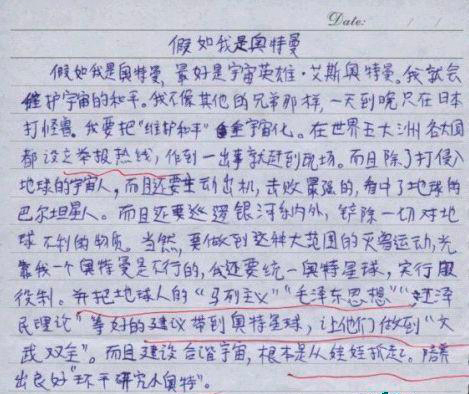 Date: / /
假如我是奥特曼
假如我是奥特曼,最好是宇宙英雄·艾斯奥特曼。我就会
维护宇宙的和平。我不像其他的兄弟那样,一天到晚只在日本
打怪兽。我要把"维护和平"全宇宙化。在世界五大洲各大国
都设立举报热线,作到一出事就赶到现场。而且除了打侵入
地球的宇宙人,而且还要主动出机,击败嚣强的,看中了地球的
巴尔坦星人。而且还要巡逻银河系内外,铲除一切对地
球不利的物质。当然,要做到这种大范围的灭兽运动,光
靠我一个奥特曼是不行的,我还要统一奥特星球,实行服
役制。并把地球人的"马列主义""毛泽东思想""泽
民理论"等好的建议带到奥特星球,让他们做到"文
武双全"。而且建设合谐宇宙,根本是从娃娃抓起。培养
出良好"环干研究小奥特"。